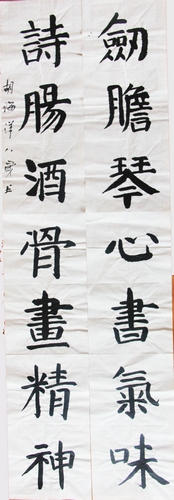 劍膽琴心書氣味
詩腸酒骨畫精神
胡海洋八歲書